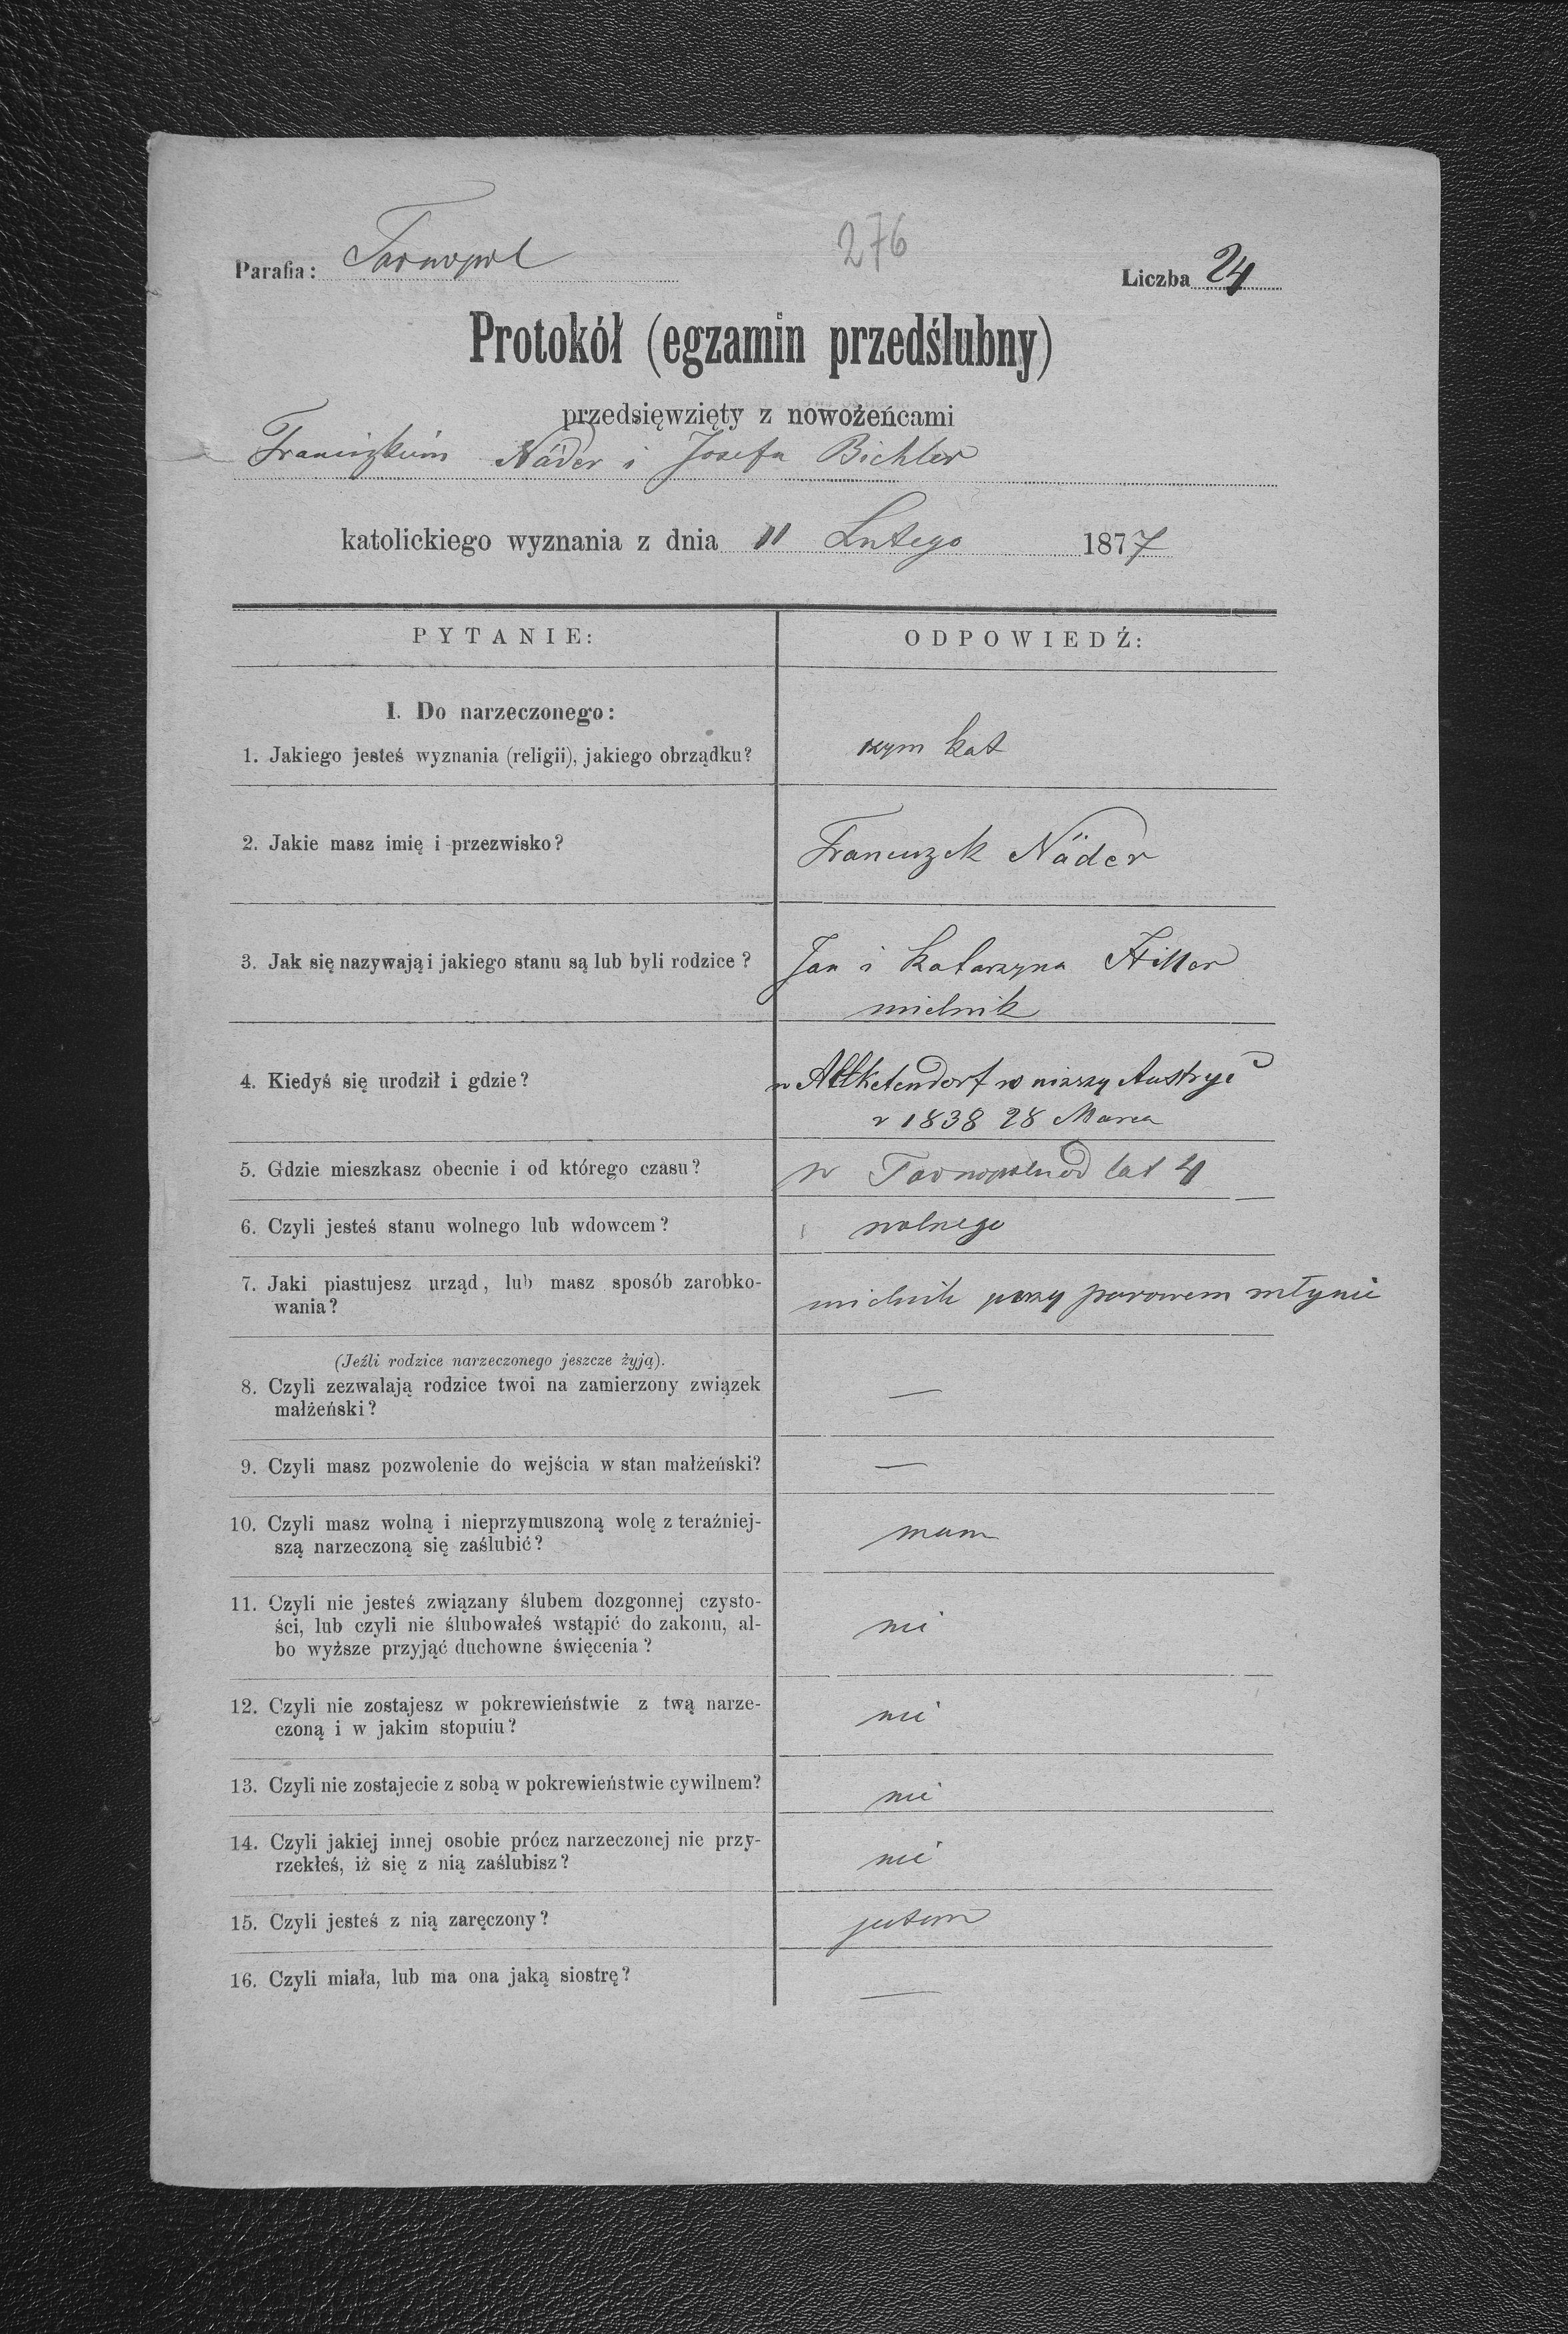 276
Parafia: Tarnopol Liczba 24
Protokół (egzamin przedślubny)
przedsięwzięty z nowożeńcami
Franciszkiem Näder i Josefa Bichler
katolickiego wyznania z dnia 11 Lutego 1877
PYTANIE: ODPOWIEDŹ:
I. Do narzeczonego:
1. Jakiego jesteś wyznania (religii), jakiego obrządku? rzym kat
2. Jakie masz imię i przezwisko? Franciszek Näder
3. Jak się nazywają i jakiego stanu są lub byli rodzice? Jan i Katarzyna Hiller
mielnik
4. Kiedyś się urodził i gdzie? w Altketendorf w niższy Austryi
r 1838 28 Marca
5. Gdzie mieszkasz obecnie i od którego czasu? w Tarnopolu od lat 4
6. Czyli jesteś stanu wolnego lub wdowcem? wolnego
7. Jaki piastujesz urząd, lub masz sposób zarobko-
wania? mielnik przy parowem młynie
(Jeźli rodzice narzeczonego jeszcze żyją).
8. Czyli zezwalają rodzice twoi na zamierzony związek —
małżeński?
9. Czyli masz pozwolenie do wejścia w stan małżeński? —
10. Czyli masz wolną i nieprzymuszoną wolę z teraźniej- mam
szą narzeczoną się zaślubić?
11. Czyli nie jesteś związany ślubem dozgonnej czysto-
ści, lub czyli nie ślubowałeś wstąpić do zakonu, al- nie
bo wyższe przyjąć duchowne święcenia?
12. Czyli nie zostajesz w pokrewieństwie z twą narze- nie
czoną i w jakim stopuiu?
13. Czyli nie zostajecie z sobą w pokrewieństwie cywilnem? nie
14. Czyli jakiej innej osobie prócz narzeczonej nie przy-
rzekłeś, iż się z nią zaślubisz? nie
15. Czyli jesteś z nią zaręczony? jestem
16. Czyli miała, lub ma ona jaką siostrę? —